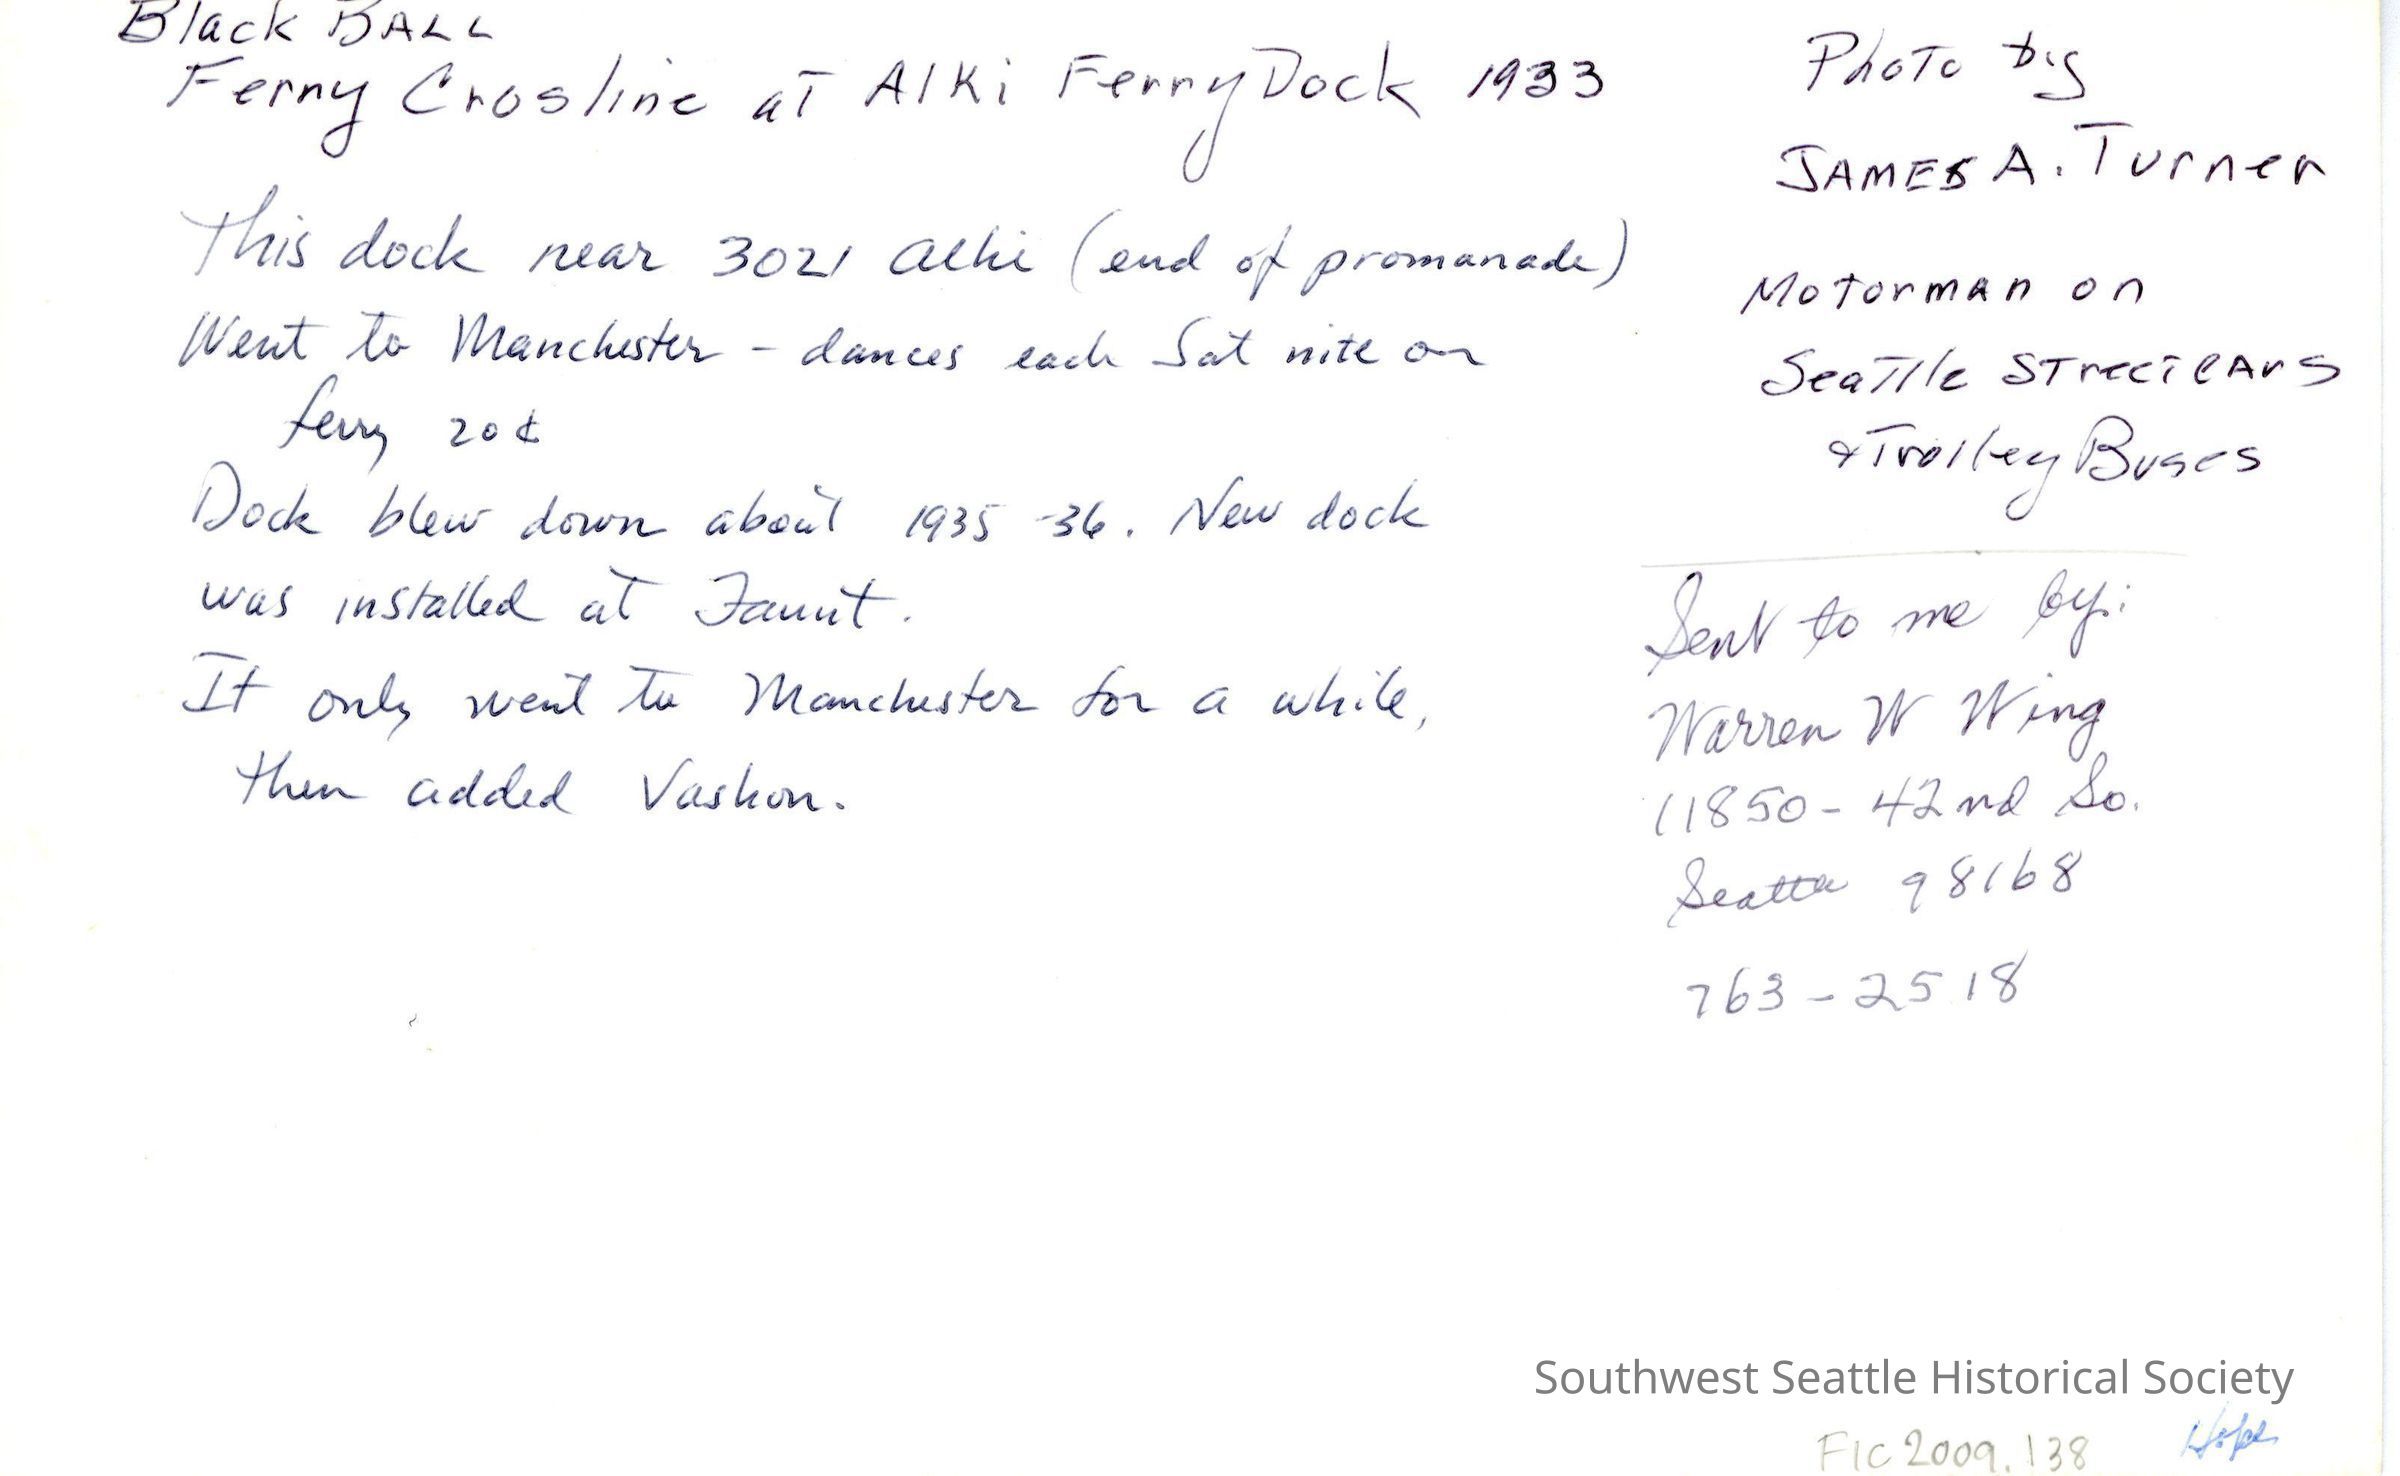 Black BALL
Ferry Crosline at Alki Ferry Dock 1933
This dock near 3021 Alki (end of promanade)
Went to Manchester - dances each Sat nite on
ferry 20¢
Dock blew down about 1935-36. New dock
was installed at Faunt.
It only went to Manchester for a while,
then added Vashon.
Photo by
JAMES A. Turner
Motorman on
Seattle Streetcars
& Trolley Buses
Sent to me by:
Warren W Wing
11850 - 42nd So.
Seattle 98168
763-2518
Southwest Seattle Historical Society
FIC 2009.138